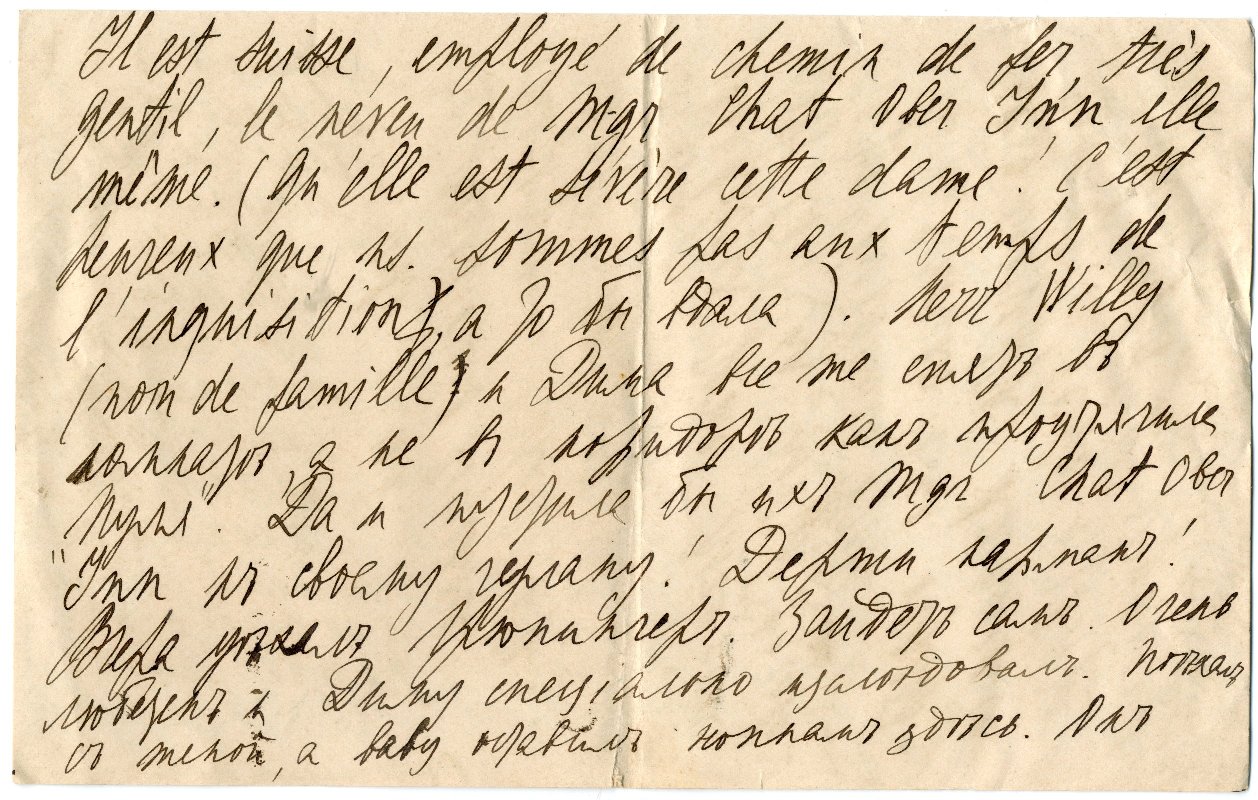 Il est suisse, employé de chemin de fer très
gentil, le néveu de Mgr Chat Ober Inn elle
même. (Qu'elle est sévère cette dame! C'est
heureux que ns. sommes pas aux temps de
l'inquisition), а то бы ). Herr Willy
(nom de famille) и Дима все же спятъ въ
комнатѣ, а не въ корридорѣ какъ
". Да и пустила бы ихъ Mgr Chat Ober
"Inn къ своему герману! Держи карманъ!
Вчера уѣхалъ Кюпингеръ. Зайдетъ самъ. Очень
любезенъ и Диму спеціально. Поѣхалъ
съ женой, а baby оставилъ здѣсь. Онъ